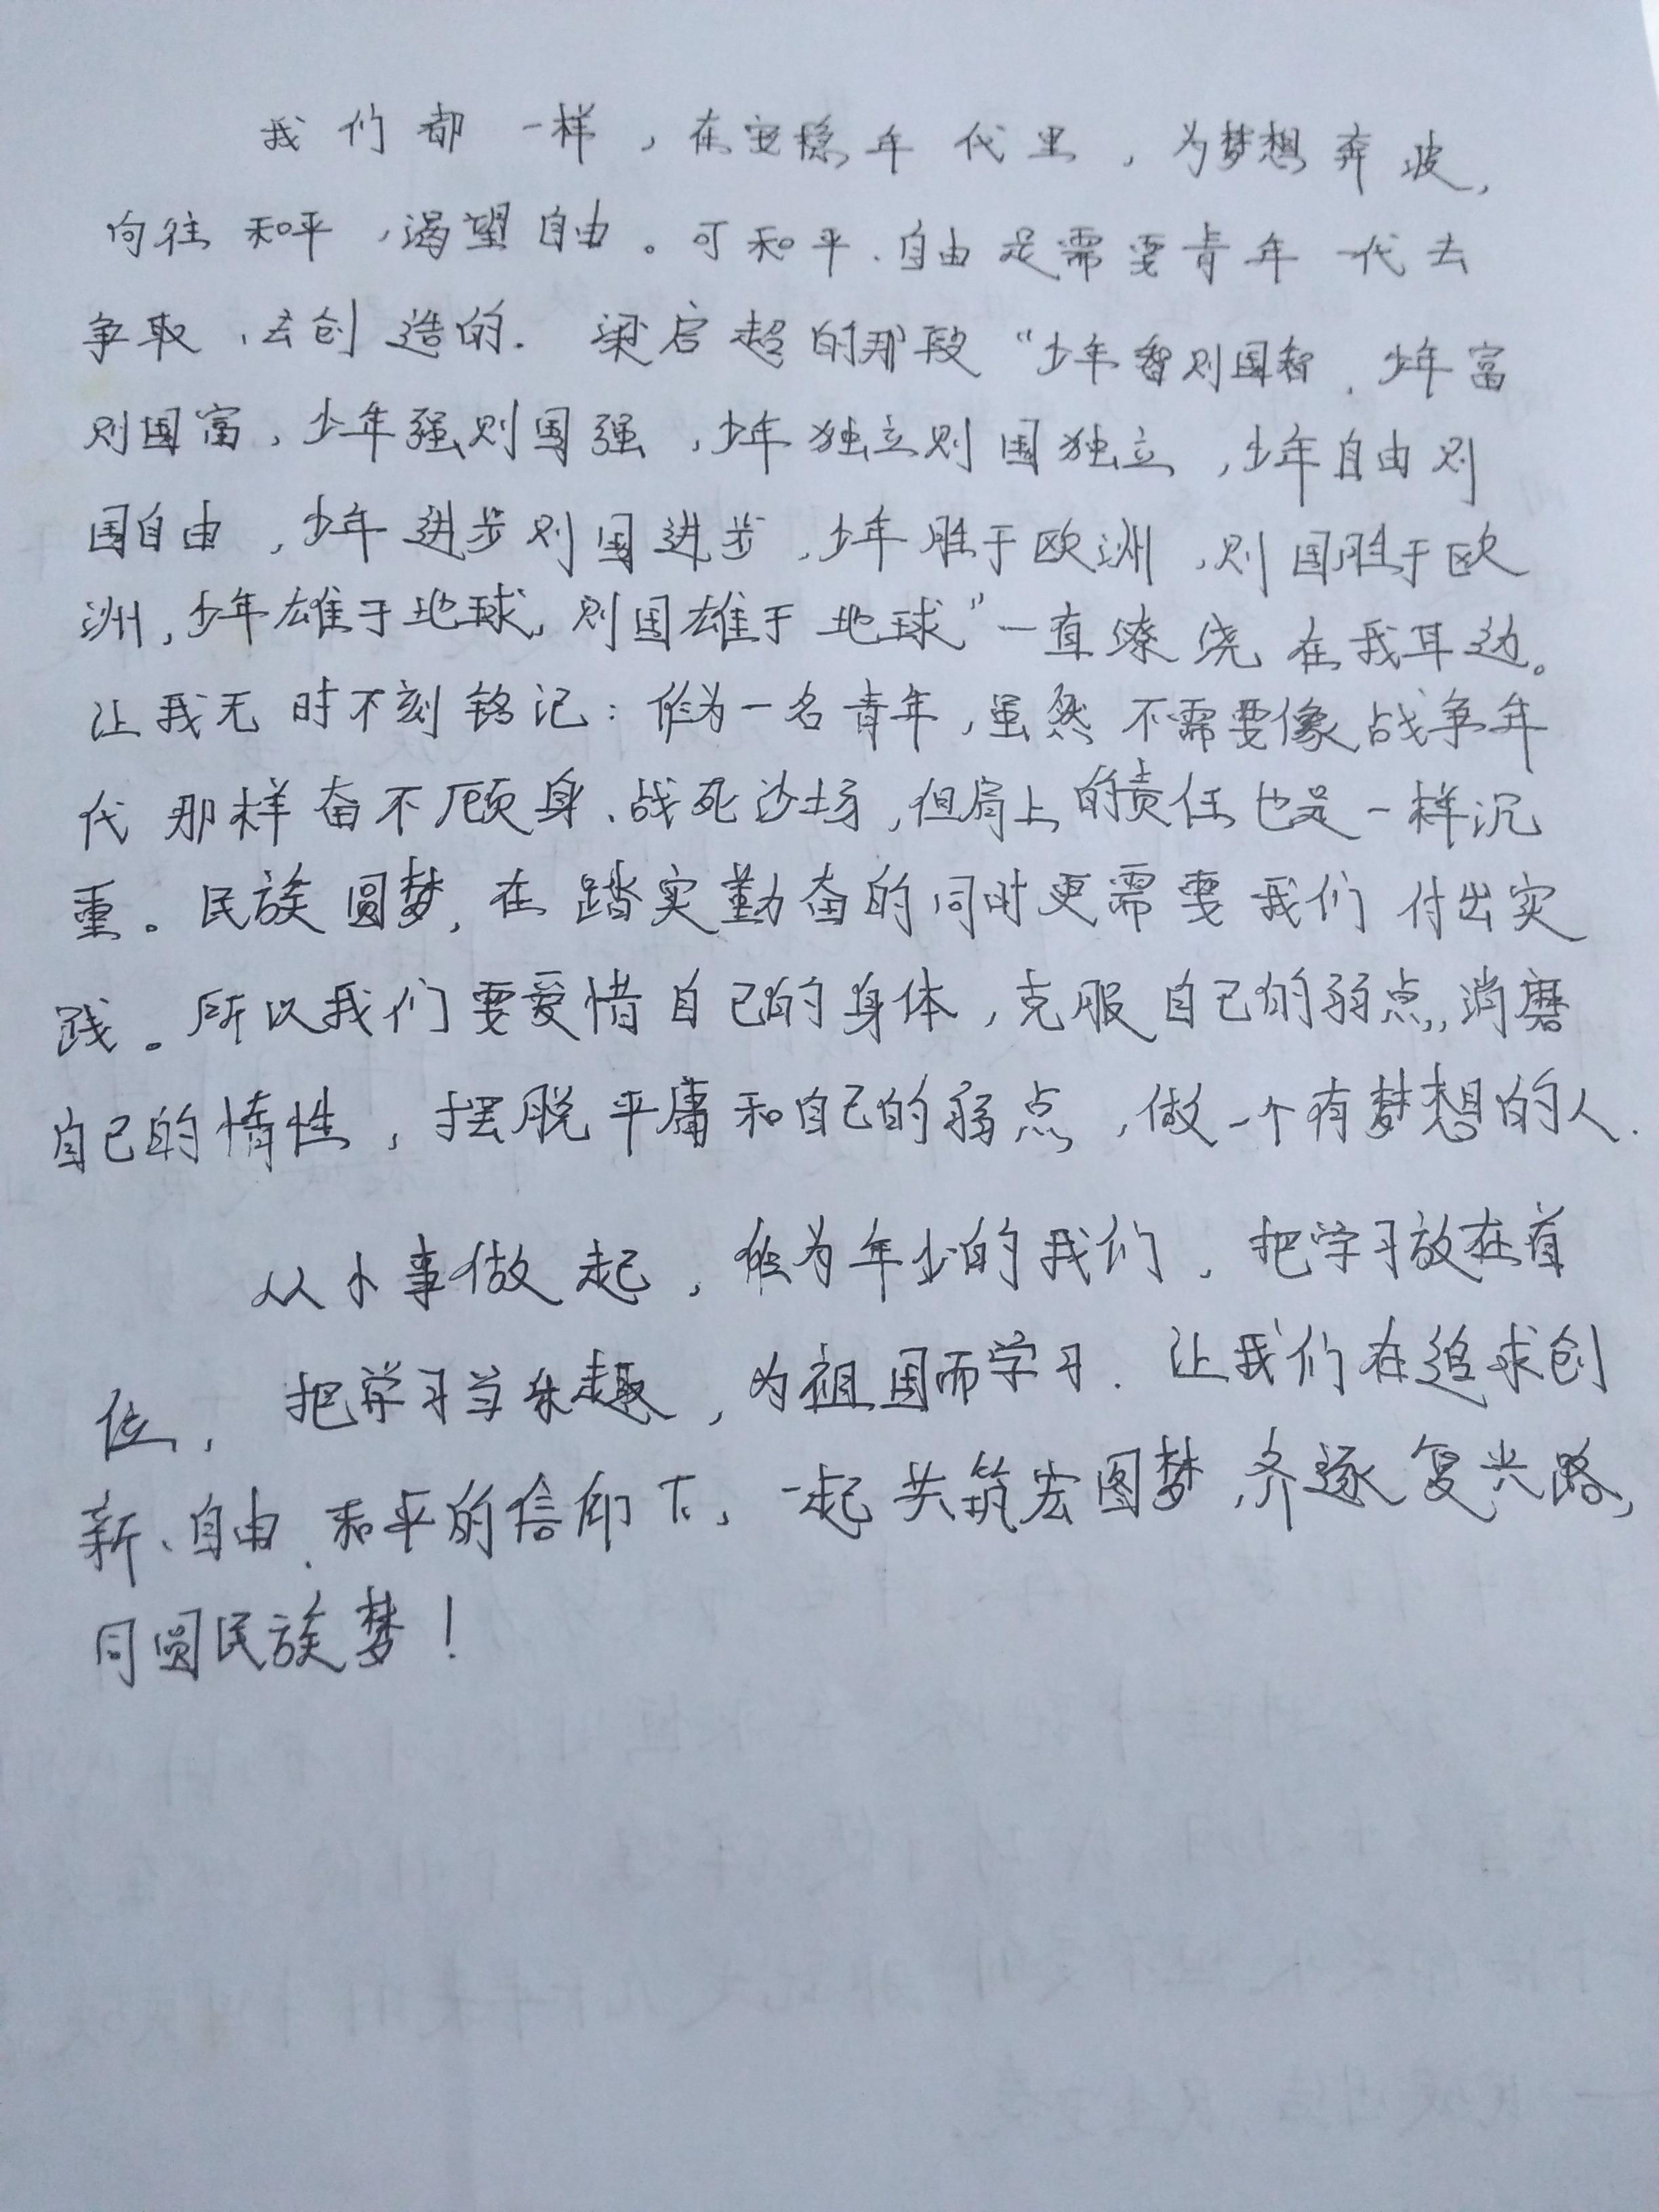 我们都一样，在安稳年代里，为梦想奔波，
向往和平，渴望自由。可和平、自由是需要青年一代去
争取，去创造的．梁启超的那段“少年智则国智，少年富
则国富，少年强则国强，少年独立则国独立，少年自由则
国自由，少年进步则国进步，少年胜于欧洲，则国胜于欧
洲，少年雄于地球，则国雄于地球”一直缭绕在我耳边。
让我无时不刻铭记：作为一名青年，虽然不需要像战争年
代那样奋不顾身、战死沙场，但肩上的责任也是一样沉
重。民族圆梦，在踏实勤奋的同时更需要我们付出实
践。所以我们要爱惜自己的身体，克服自己的弱点，消磨
自己的惰性，摆脱平庸和自己的弱点，做一个有梦想的人．
从小事做起，作为年少的我们，把学习放在首
位，把学习当乐趣，为祖国而学习．让我们在追求创
新、自由、和平的信仰下，一起共筑宏图梦，齐逐复兴路，
同圆民族梦！